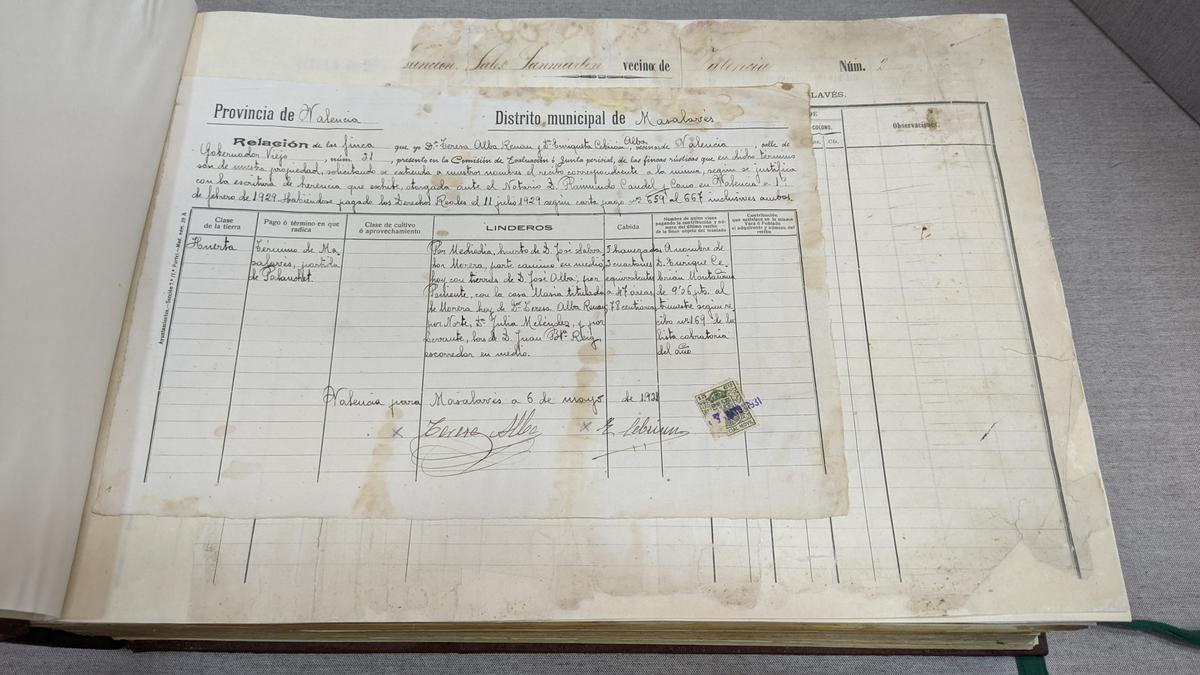 Sales Sanmartin vecino de Valencia Núm. 2
LAVÉS.
Provincia de Valencia Distrito municipal de Masalavés
COLONO.
Observaciones.
Relación de las finca que yo Dª Teresa Alba Renau y Dª Enriqueta Cebrián Alba, vecinas de Valencia, calle de
Gobernador Viejo, núm. 31, presento en la Comisión de Evaluación ó Junta pericial, de las fincas rústicas que en dicho término
son de nuestra propiedad, solicitando se extienda a nuestro nombre el recibo correspondiente a la misma, según se justifica
con la escritura de herencia que exhibe, otorgada ante el Notario D. Raimundo Candel y Cano en Valencia a 19
de febrero de 1929. Habiéndose pagado los Derechos Reales el 11 julio 1929 según carta pago nº 659 al 667 inclusives ambos
Clase de la tierra
Pago ó término en que radica
Clase de cultivo ó aprovechamiento
LINDEROS
Cabida
Nombre de quien viene pagando la contribución y número del último recibo de la finca objeto del traslado
Contribución que satisface en la misma Vara ó Poblado el adquirente y número del recibo
Huerta
Término de Ma-
salavés, partida
de Palanchet.
Por Mediodia, huerto de D. José Salva-
dor Morera, parte camino en medio
hoy con tierras de D. José Alba; por
Poniente, con la casa Masia titulada
de Morera hoy de Dª Teresa Alba Renau,
por Norte, Dª Julia Meléndez, y por
Levante, los de D. Juan Btª Reig,
escorredor en medio.
5 hanegadas
3 cuartones
equivalentes
a 47 áreas
78 centiáreas
A nombre de
D. Enrique Ce-
brián Montañana
de 9'36 pts. al
trimestre según re-
cibo nº 169 de la
lista cobratoria
del año
Valencia para Masalavés a 6 de mayo de 1931
Teresa Alba E Cebrian
1931